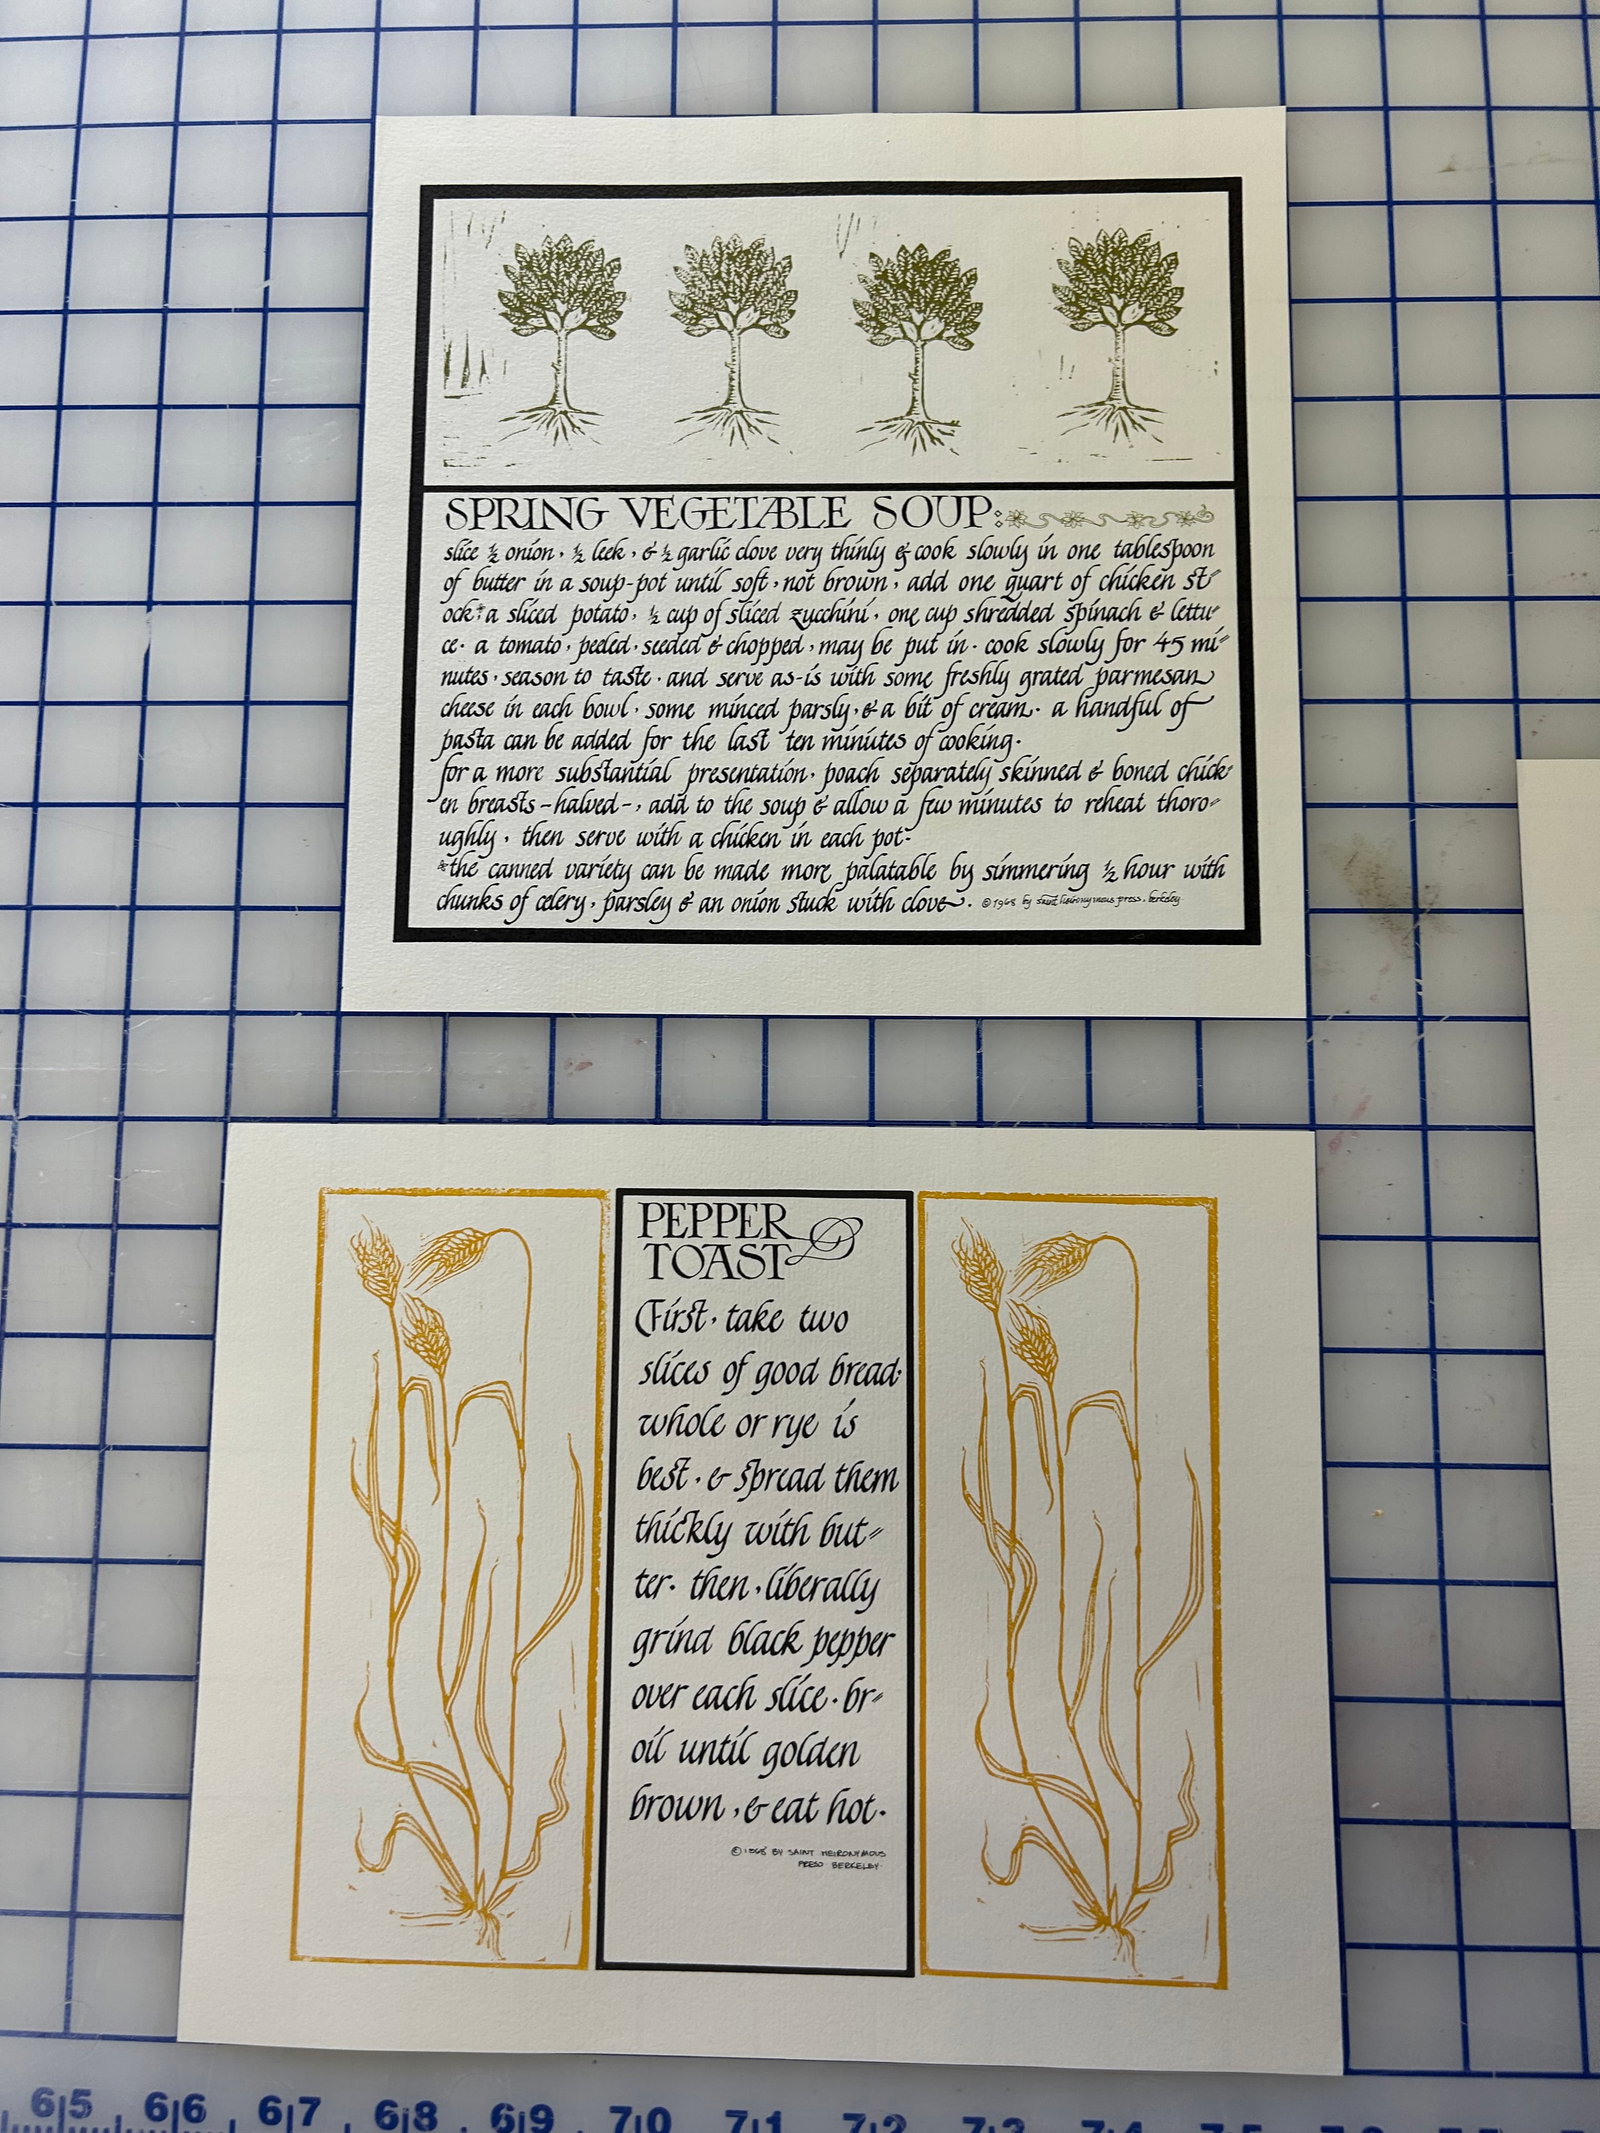 SPRING VEGETABLE SOUP:
slice ½ onion, ½ leek, & ½ garlic clove very thinly & cook slowly in one tablespoon
of butter in a soup-pot until soft, not brown, add one quart of chicken st=
ock*, a sliced potato, ½ cup of sliced zucchini, one cup shredded spinach & lettu=
ce. a tomato, peeled, seeded & chopped, may be put in. cook slowly for 45 mi=
nutes, season to taste, and serve as-is with some freshly grated parmesan
cheese in each bowl, some minced parsly, & a bit of cream. a handful of
pasta can be added for the last ten minutes of cooking.
for a more substantial presentation, poach separately skinned & boned chick=
en breasts -halved-, add to the soup & allow a few minutes to reheat thoro=
ughly, then serve with a chicken in each pot.
*the canned variety can be made more palatable by simmering ½ hour with
chunks of celery, parsley & an onion stuck with clove. © 1968 by saint heironymous press, berkeley
PEPPER
TOAST
First, take two
slices of good bread.
whole or rye is
best, & spread them
thickly with but=
ter. then, liberally
grind black pepper
over each slice. br=
oil until golden
brown, & eat hot.
© 1968 BY SAINT HEIRONYMOUS
PRESS BERKELEY.
65 66 67 68 69 70 71 72 73 74 75